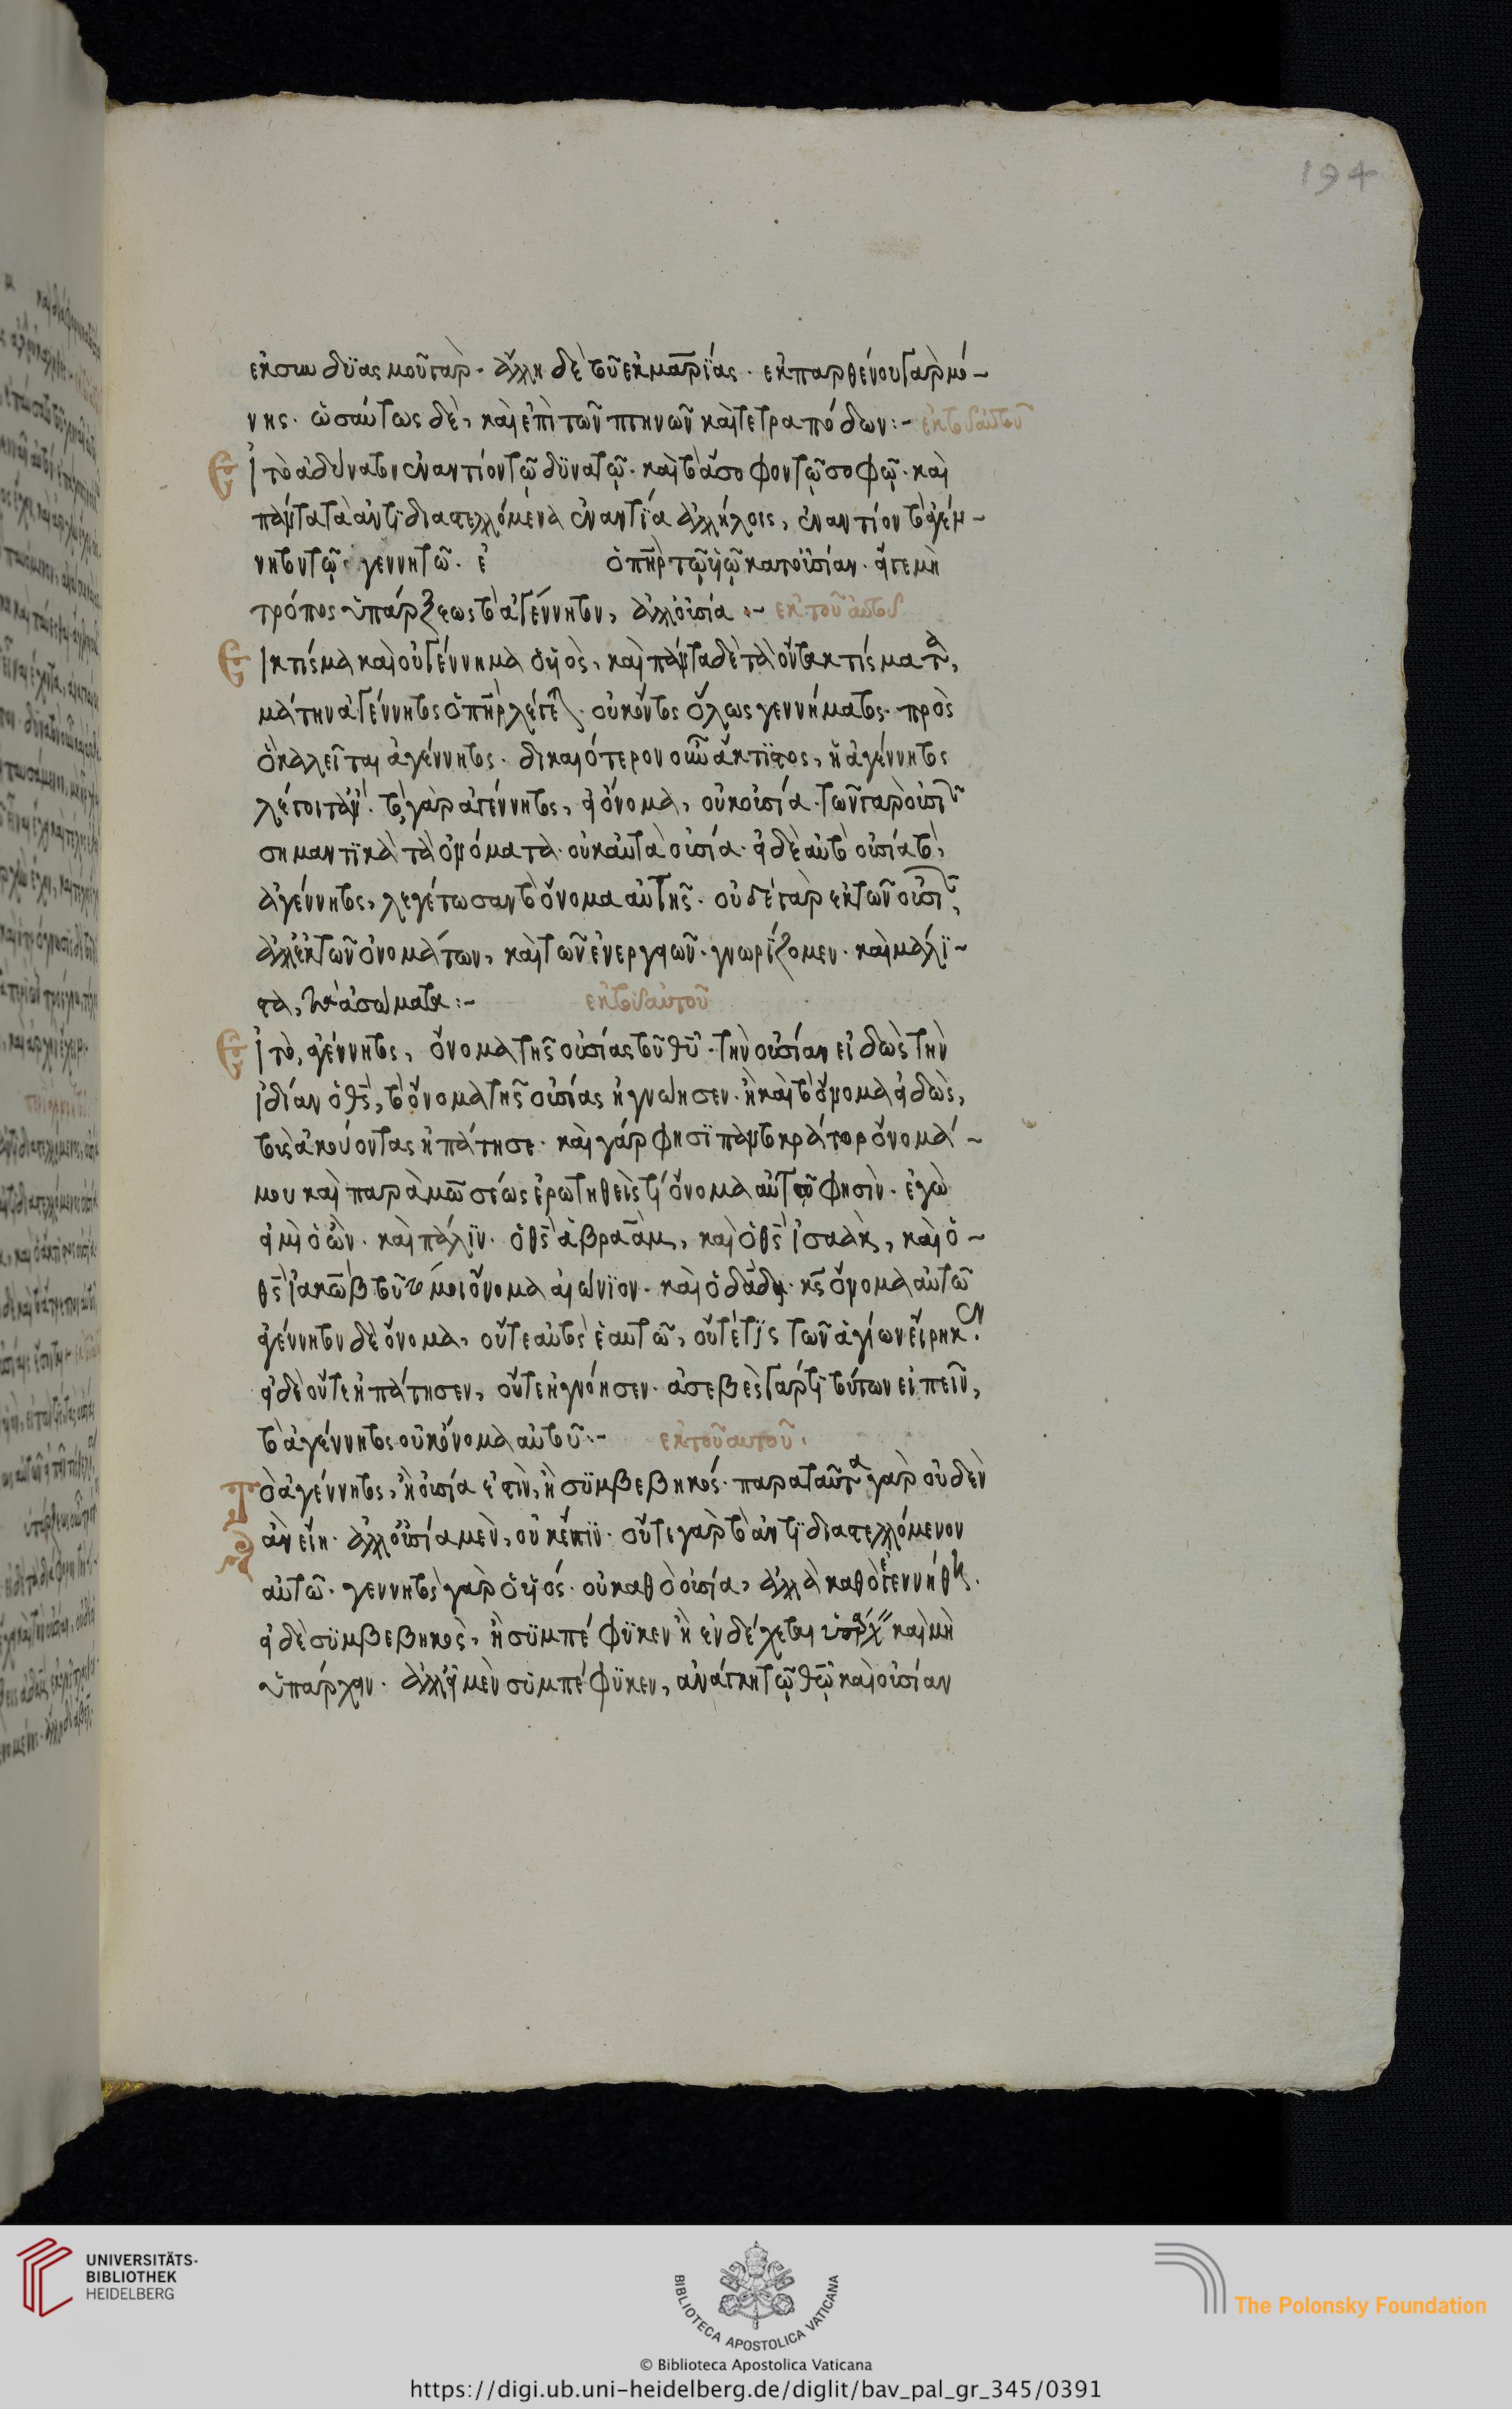 194
ἐκ συνδϋασμοῦ γὰρ· ἄλλη δὲ τοῦ ἐκ μαρϊάς· ἐκ παρθένου γὰρ μό-
νης· ὡσαύτως δὲ, καὶ ἐπὶ τῶν πτηνῶν καὶ τετραπόδων:- ἐκ τοῦ αὐτοῦ
Εἰ τὸ ἀδύνατον ἐναντίον τῷ δϋνατῷ· καὶ τὸ ἄσοφον τῷ σοφῷ· καὶ
πάντα τὰ ἀντϊδιαστελλόμενα ἐναντία ἀλλήλοις, ἐναντίον τὸ ἀγέν-
νητον τῷ γεννητῶ· ἐ ὁ πηρ τῷ υἱῷ κατ οὐσίαν· εἴγε μὴ
τρόπος ὑπάρξεως τὸ ἀγέννητον, ἀλλ οὐσία :- ἐκ τοῦ αὐτοῦ
Εἰ κτίσμα καὶ οὐ γέννημα ὁ υἱὸς, καὶ πάντα δὲ τὰ ὄντα κτίσματα,
μάτην ἀγέννητος ὁ πηρ λέγε· οὐκ ὄντος ὅλως γεννήματος· πρὸς
ὃ καλεῖται ἀγέννητος· δικαιότερον οὖν ἄκτϊστος, ἢ ἀγέννητος
λέγοιτ ἄν· τὸ γὰρ ἀγέννητος, εἰ ὄνομα, οὐκ οὐσία· τῶν γὰρ οὐσι
σημαντϊκὰ τὰ ὀνόματα· οὐκ αὐτὰ οὐσία· εἰ δὲ αὐτὸ οὐσία τὸ,
ἀγέννητος, λεγέτωσαν τὸ ὄνομα αὐτῆς· οὐδὲ γὰρ ἐκ τῶν οὐσι,
ἀλλ ἐκ τῶν ὀνομάτων, καὶ τῶν ἐνεργειῶν· γνωρίζομεν· καὶ μάλϊ-
στα, τὰ ἀσώματα:- ἐκ τοῦ αὐτοῦ
Εἰ τὸ, ἀγέννητος, ὄνομα τῆς οὐσίας τοῦ θυ· τὴν οὐσίαν εἰδὼς τὴν
ἰδίαν ὁ θς, τὸ ὄνομα τῆς οὐσίας ἠγνώησεν· ἢ καὶ τὸ ὄνομα εἰδὼς,
τοὺς ἀκούοντας ἠπάτησε· καὶ γάρ φησϊ παντοκράτορ ὄνομά-
μου καὶ παρὰ μωσέως ἐρωτηθεὶς τί ὄνομα αὐτοῦ φησὶν· ἐγὼ
εἰμὶ ὁ ὢν· καὶ πάλϊν· ὁ θς ἀβραὰμ, καὶ ὁ θς ἰσαὰκ, καὶ ὁ-
θς ἰακὼβ τοῦτό μοι ὄνομα αἰώνϊον· καὶ ὁ δαδ· κς ὄνομα αὐτῶ
ἀγέννητον δὲ ὄνομα, οὔτε αὐτὸς ἑαυτῶ, οὔτέ τϊς τῶν ἁγίων εἴρηκεν·
εἰ δὲ οὔτε ἠπάτησεν, οὔτε ἠγνόησεν· ἀσεβὲς γάρ τϊ τούτων εἰπεῖν,
τὸ ἀγέννητος οὐκ ὄνομα αὐτοῦ:- ἐκ τοῦ αὐτοῦ·
Τὸ ἀγέννητος, ἢ οὐσία ἐστὶν, ἢ σϋμβεβηκός· παρὰ ταῦτα γὰρ οὐδὲν
ἂν εἴη· ἀλλ οὐσία μὲν, οὐκ ἔστϊν· οὔτε γὰρ τὸ ἀντϊδιαστελλόμενον
αὐτῶ· γεννητὸς γὰρ ὁ υἱός· οὐ καθὸ οὐσία, ἀλλὰ καθὸ ἐγεννήθη·
εἰ δὲ σϋμβεβηκὸς, ἢ σϋμπέφϋκεν ἢ ἐνδέχεται ὑπάρχ καὶ μὴ
ὑπάρχειν· ἀλλ εἰ μὲν σϋμπέφϋκεν, ἀνάγκη τῷ θῷ καὶ οὐσίαν
UNIVERSITÄTS-
BIBLIOTHEK
HEIDELBERG
BIBLIOTECA APOSTOLICA VATICANA
The Polonsky Foundation
© Biblioteca Apostolica Vaticana
https://digi.ub.uni-heidelberg.de/diglit/bav_pal_gr_345/0391